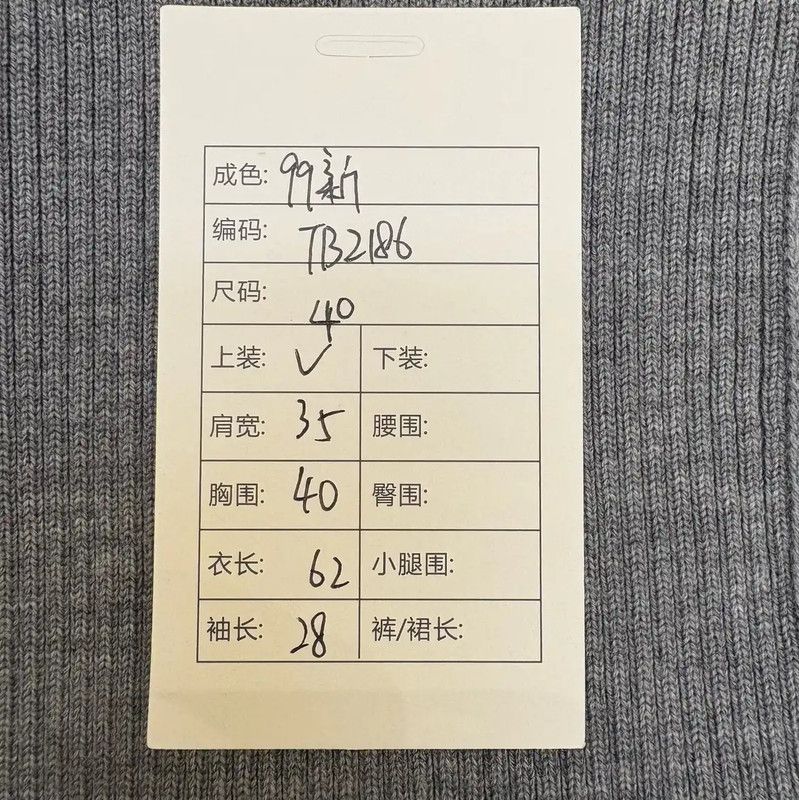 成色: 99新
编码: TB2186
尺码: 40
上装: ✓ 下装:
肩宽: 35 腰围:
胸围: 40 臀围:
衣长: 62 小腿围:
袖长: 28 裤/裙长: